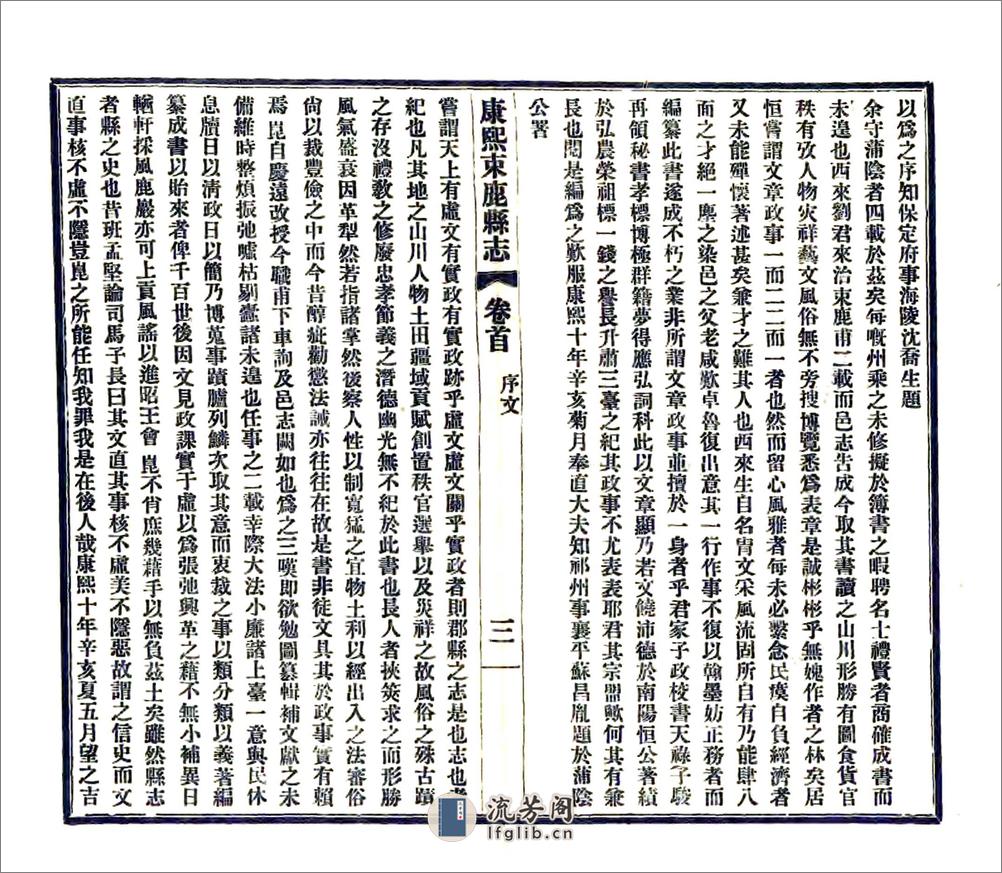 以爲之序知保定府事海陵沈喬生題
余守蒲陰者四載於茲矣每嘅州乘之未修擬於簿書之暇聘名士禮賢者商確成書而
未遑也西來劉君來治束鹿甫二載而邑志吿成今取其書讀之山川形勝有圖食貨官
秩有攷人物灾祥藝文風俗無不旁搜博覽悉爲表章是誠彬彬乎無媿作者之林矣居
恒嘗謂文章政事一而二二而一者也然而留心風雅者每未必繫念民瘼自負經濟者
又未能殫懷著述甚矣兼才之難其人也西來生自名冑文采風流固所自有乃能肆八
面之才絕一塵之染邑之父老咸歎卓魯復出意其一行作事不復以翰墨妨正務者而
編纂此書遂成不朽之業非所謂文章政事並擅於一身者乎君家子政校書天祿子駿
再領秘書孝標博極群籍夢得應弘詞科此以文章顯乃若文饒沛德於南陽恒公著績
於弘農榮祖標一錢之譽長升肅三臺之紀其政事不尤表表耶君其宗盟歟何其有兼
長也閱是編爲之歎服康熙十年辛亥菊月奉直大夫知祁州事襄平蘇昌胤題於蒲陰
公署
康熙束鹿縣志 卷首 序文 三
嘗謂天上有虛文有實政有實政跡乎虛文虛文關乎實政者則郡縣之志是也志也者
紀也凡其地之山川人物土田疆域貢賦創置秩官選舉以及災祥之故風俗之殊古蹟
之存沒禮敎之修廢忠孝節義之潛德幽光無不紀於此書也長人者挾筴求之而形勝
風氣盛衰因革犁然若指諸掌然後察人性以制寬猛之宜物土利以經出入之法審俗
尙以裁豐儉之中而今昔醇疵勸懲法誡亦往往在故是書非徒文具其於政事實有賴
焉崑自慶遠改授今職甫下車詢及邑志闕如也爲之三嘆即欲勉圖纂輯補文獻之未
備維時整煩振弛噓枯剔蠹諸未遑也任事之二載幸際大法小廉諸上臺一意與民休
息牘日以淸政日以簡乃博蒐事蹟臚列鱗次取其意而衷裁之事以類分類以義著編
纂成書以貽來者俾千百世後因文見政課實于虛以爲張弛興革之藉不無小補異日
輶軒採風鹿嚴亦可上貢風謠以進昭王會崑不肖庶幾藉手以無負茲土矣雖然縣志
者縣之史也昔班孟堅論司馬子長曰其文直其事核不虛美不隱惡故謂之信史而文
直事核不虛不隱豈崑之所能任知我罪我是在後人哉康熙十年辛亥夏五月望之吉
流芳阁
lfglib.cn